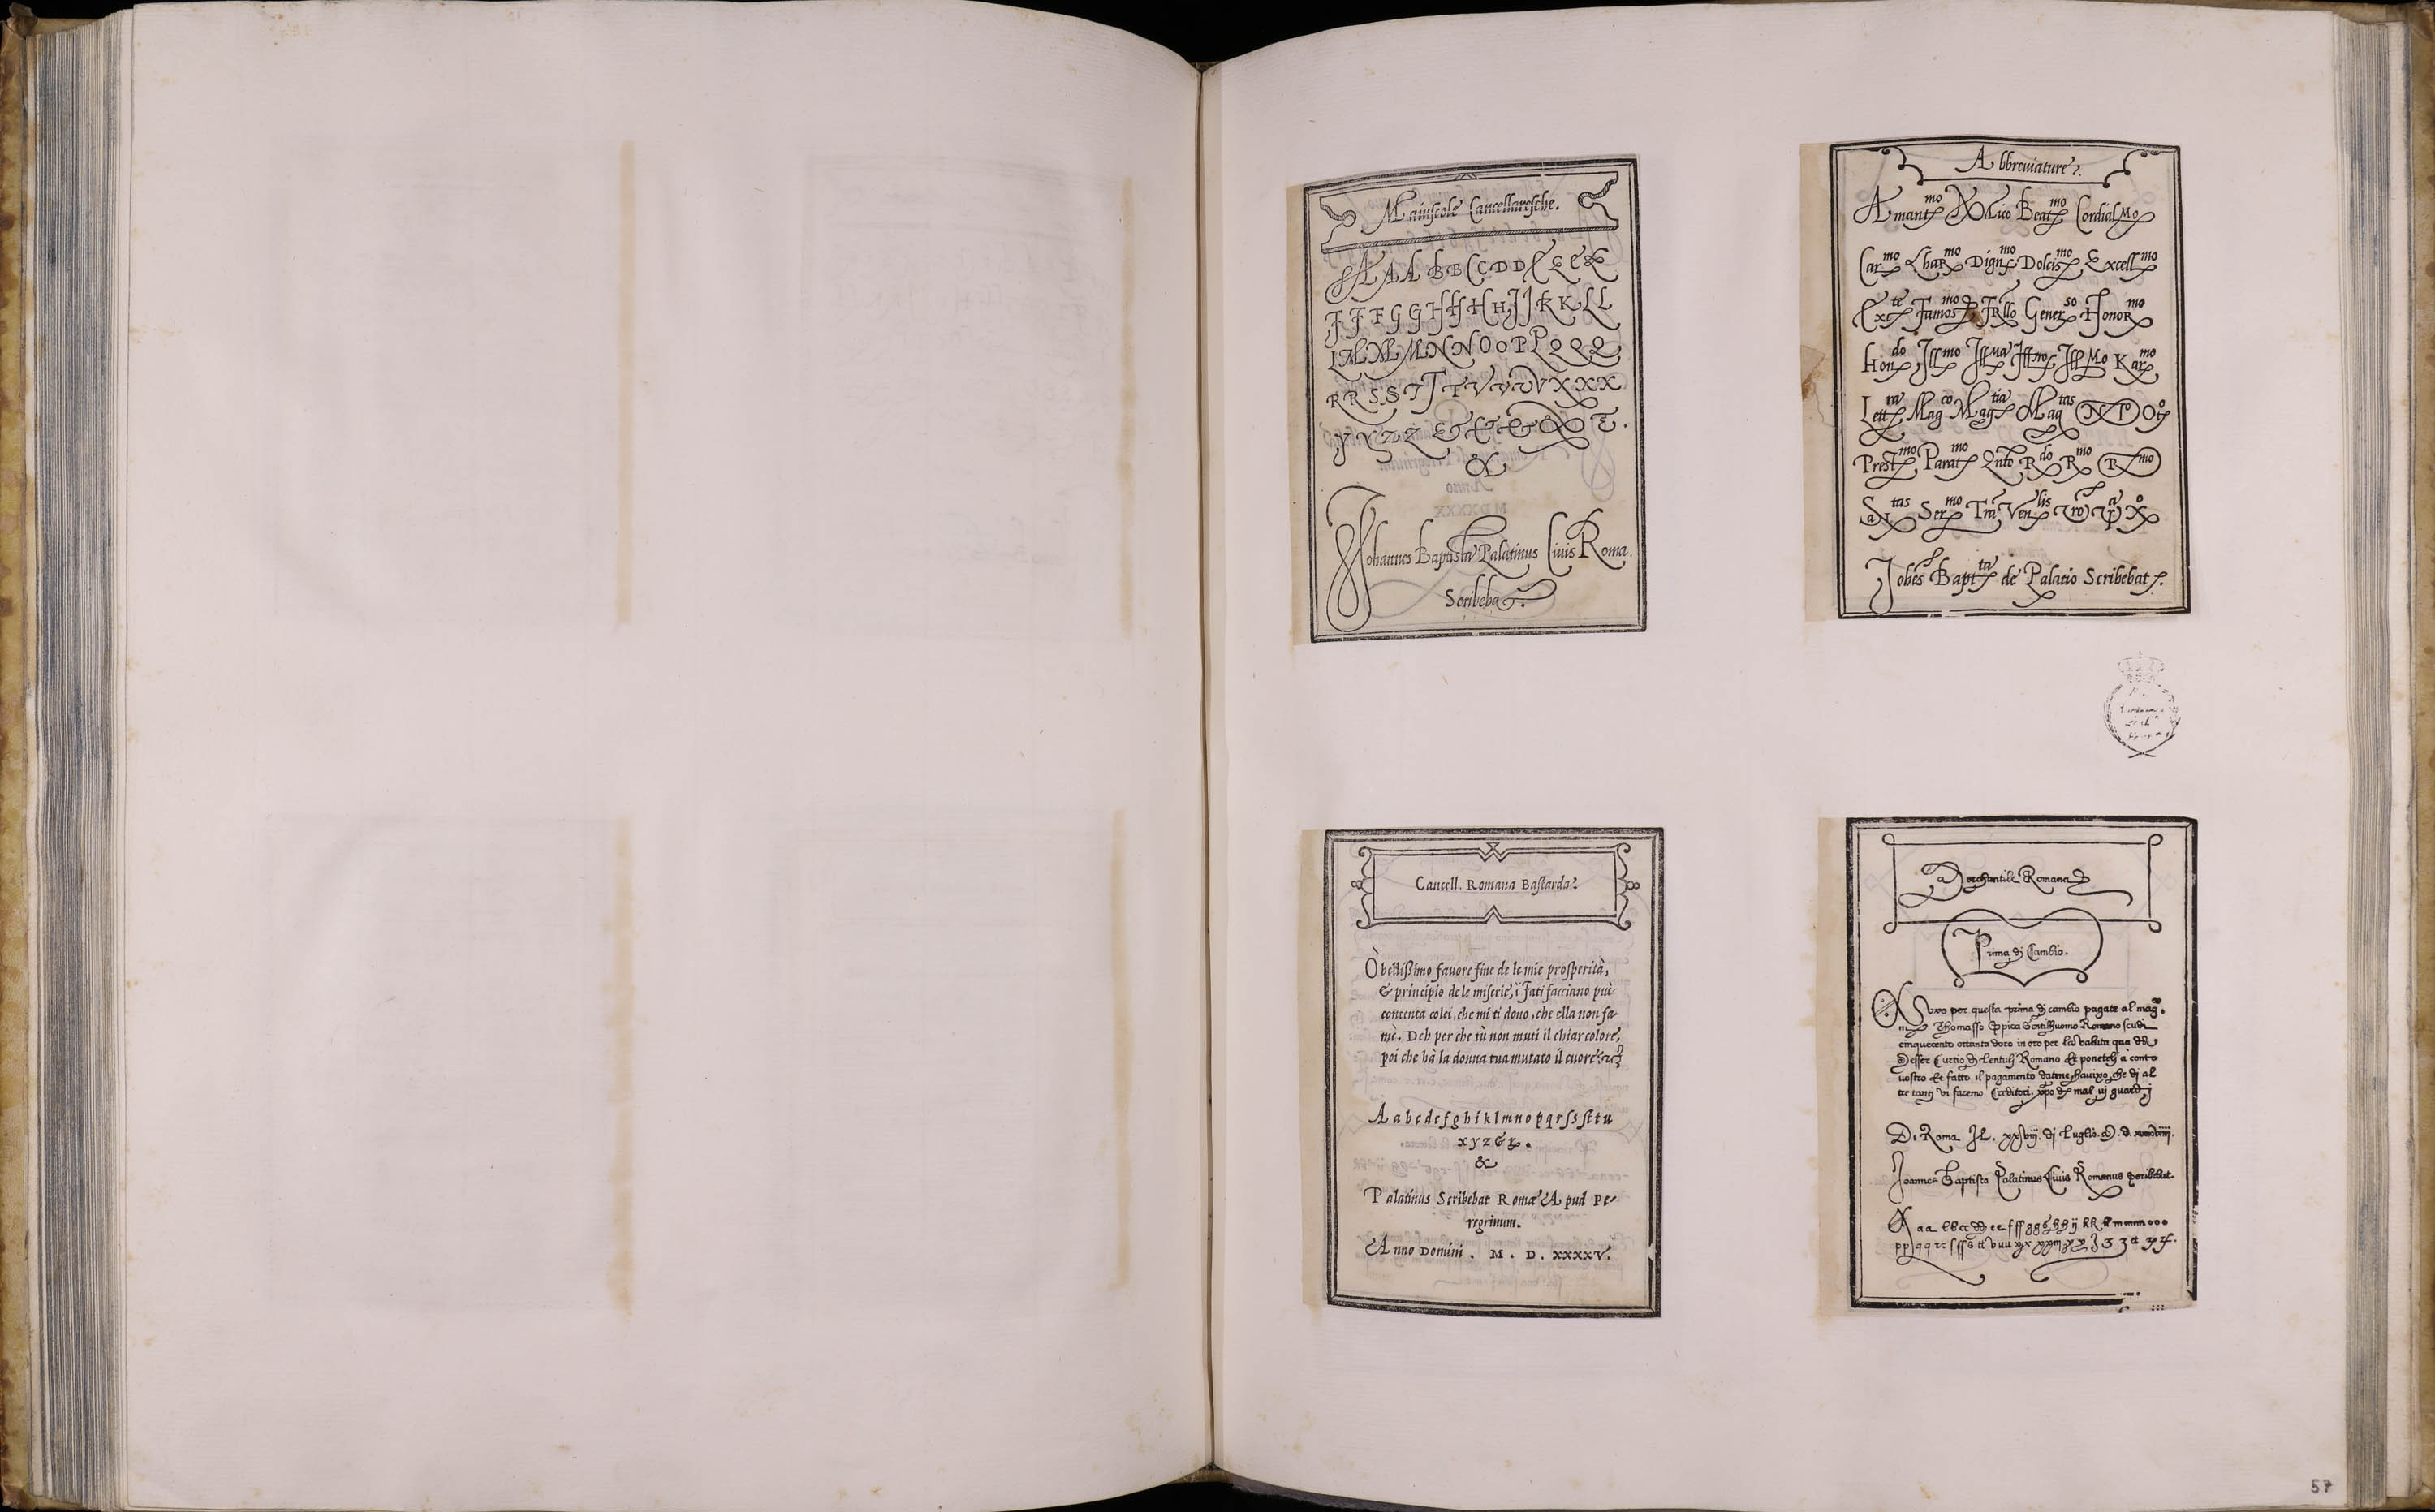 Maiuscole Cancellaresche.
A A A B B C C D D E E E E
F F F G G H H H H I J K K L L
L M M M N N O O P P Q Q Q
R R S S T T T V V V V X X X
Y Y Z Z & & & & &.
&
Johannes Baptista Palatinus Civis Roma.
Scribebat.
Abbreviature.
Amantmo Amico Beatmo Cordialmo
Carmo Charmo Dignmo Dolcismo Excellmo
Exte Famosmo Frllo Generso Honormo
Hondo Illmo Karmo
Lettra Magco Magtia Magtas No Po
Prestmo Paratmo Qnto Rdo Rmo Rmo
Stas Sermo Tra Venlis
Jobes Baptta de Palatio Scribebat.
Cancell. Romana Bastarda.
Ò bellißimo favore fine de le mie prosperità,
& principio de le miserie, i Fati facciano più
contenta colei, che mi ti dono, che ella non fa
mè. Deh per che tù non muti il chiar colore,
poi che hà la donna tua mutato il cuore?
A a b c d e f g h i k l m n o p q r ſ s ſt t u
x y z & .
&
Palatinus Scribebat Romæ Apud Pe-
regrinum.
Anno Domini . M . D . XXXXV.
Merchantile Romana
Prima di Cambio.
per questa prima di cambio pagate al mag.
Thomasso Romano scudi
cinquecento ottanta doro in oro per la valuta qua da
Messer Curtio di Lentuli Romano et poneteli à conto
vostro et fatto il pagamento datene che di al
tre tanti vi facemo Creditori. mal vi guardi
Di Roma Il. xxviii. di Luglio. M. D. xxxviiii.
Joannes Baptista Palatinus Civis Romanus scribebat.
57